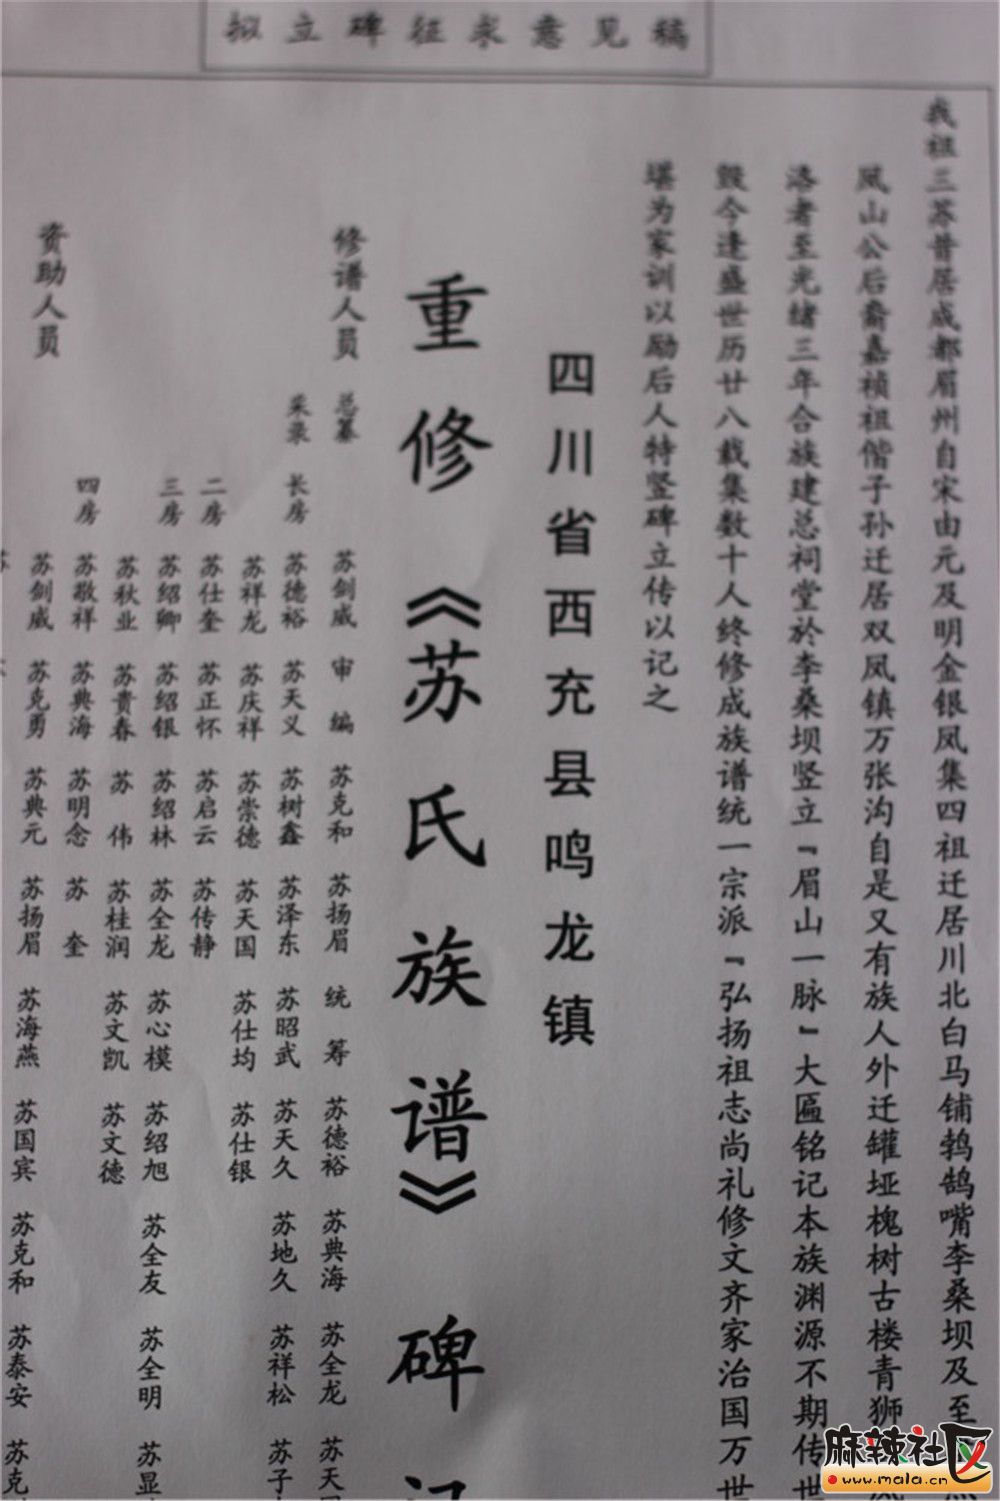 拟立碑征求意见稿
我祖三苏昔居成都眉州自宋由元及明金银凤集四祖迁居川北白马铺鹁鹄嘴李桑坝及至
凤山公后裔嘉祯祖偕子孙迁居双凤镇万张沟自是又有族人外迁罐垭槐树古楼青狮
洛者至光绪三年合族建总祠堂於李桑坝竖立『眉山一脉』大匾铭记本族渊源不期传世
毁今逢盛世历廿八载集数十人终修成族谱统一宗派『弘扬祖志尚礼修文齐家治国万世
堪为家训以励后人特竖碑立传以记之
四川省西充县鸣龙镇
重修《苏氏族谱》碑记
修谱人员 总纂 苏剑威 审编 苏克和 苏扬眉 统筹 苏德裕 苏典海 苏全龙 苏天
采录 长房 苏德裕 苏天义 苏树鑫 苏泽东 苏昭武 苏天久 苏地久 苏祥松 苏子
苏祥龙 苏庆祥 苏崇德 苏天国 苏仕均 苏仕银
二房 苏仕奎 苏正怀 苏启云 苏传静
三房 苏绍卿 苏绍银 苏绍林 苏全龙 苏心模 苏绍旭 苏全友 苏全明 苏显
苏秋业 苏贵春 苏伟 苏桂润 苏文凯 苏文德
四房 苏敬祥 苏典海 苏明念 苏奎
资助人员 苏剑威 苏克勇 苏典元 苏扬眉 苏海燕 苏国宾 苏克和 苏泰安 苏克
麻辣社区
www.mala.cn